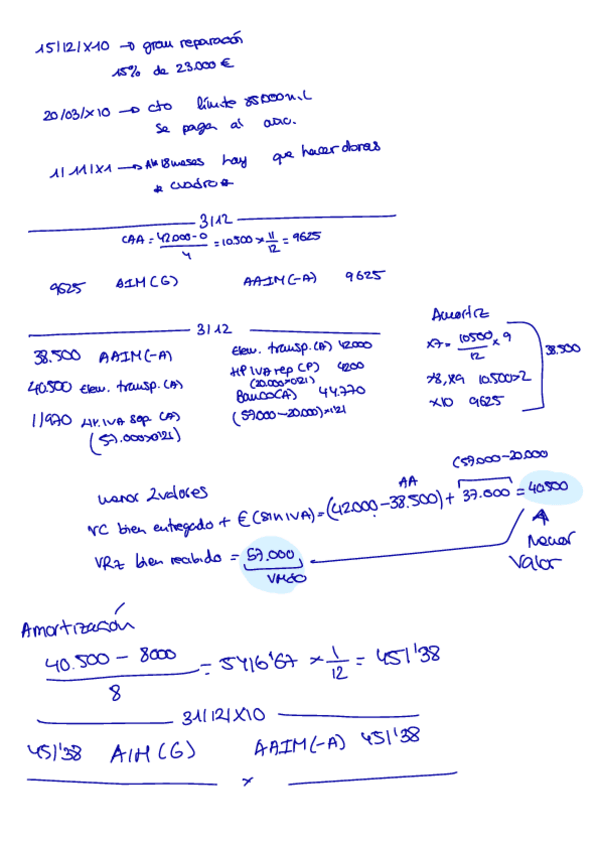 15/12/X10 → gran reparación
15% de 23.000 €
20/03/X10 → cto límite 85000 u.L
se paga al
1/11/X1 → 18 meses hay que hacer obras
* cuadro *
3/12
CAA = 42000-0 / 4 = 10.500 × 11/12 = 9625
9625 AIM(G) AAIM(-A) 9625
3/12
38.500 AAIM(-A) Elem. transp.(A) 42000
40.500 Elem. transp.(A) HP IVA rep (P) 4200
(20.000×0'21)
11970 HP. IVA sop. (A) Banco(A) 44.770
(57.000×0'21) (57000-20.000)×1'21
Amortiz
X7 = 10500/12 × 9
X8, X9 10.500×2
X10 9625
38.500
menor 2 valores
VC bien entregado + € (sin IVA) = (42000 - 38.500) + 37.000 = 40.500
AA
(57.000-20.000
VRz bien recibido = 57.000
VMdo
Menor
Valor
Amortización
40.500 - 8000 / 8 = 5416'67 × 1/12 = 451'38
31/12/X10
451'38 AIM(G) AAIM(-A) 451'38
x